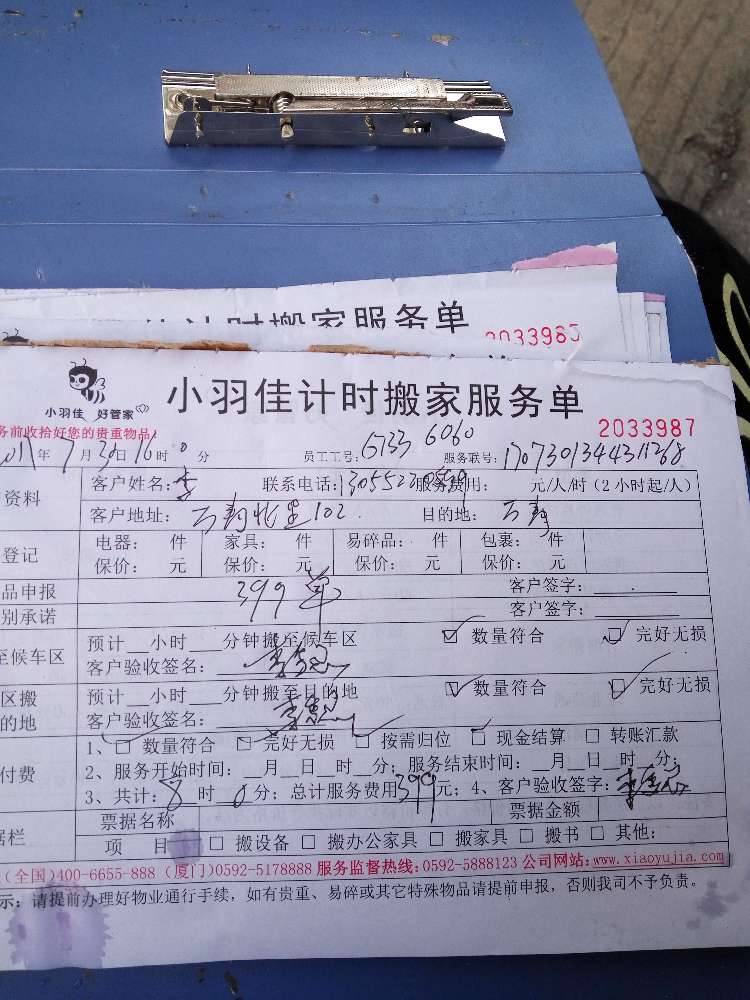 计时搬家服务单
2033985
小羽佳 好管家
小羽佳计时搬家服务单
2033987
务前收拾好您的贵重物品!
年 7 月 30 日 16 时 0 分 员工工号: 6733 6060 服务联号: 170730134431268
资料 客户姓名: 李 联系电话: 服务费用: 元/人/时 (2小时起/人)
客户地址: 万寿北里102 目的地: 万寿
登记 电器: 件 家具: 件 易碎品: 件 包裹: 件
保价: 元 保价: 元 保价: 元 保价: 元
品申报 399单 客户签字:
别承诺 客户签字:
至候车区 预计__小时___分钟搬至候车区 数量符合 完好无损
客户验收签名:
区搬 预计__小时___分钟搬至目的地 数量符合 完好无损
的地 客户验收签名:
1、□ 数量符合 □ 完好无损 □ 按需归位 □ 现金结算 □ 转账汇款
付费 2、服务开始时间:__月__日__时__分; 服务结束时间:__月__日__时__分;
3、共计: 8 时 0 分; 总计服务费用 399 元; 4、客户验收签字:
票据名称 票据金额
据栏 项 目 □ 搬设备 □ 搬办公家具 □ 搬家具 □ 搬书 □ 其他:
(全国)400-6655-888 (厦门)0592-5178888 服务监督热线:0592-5888123 公司网站:www.xiaoyujia.com
示: 请提前办理好物业通行手续, 如有贵重、易碎或其它特殊物品请提前申报, 否则我司不予负责。